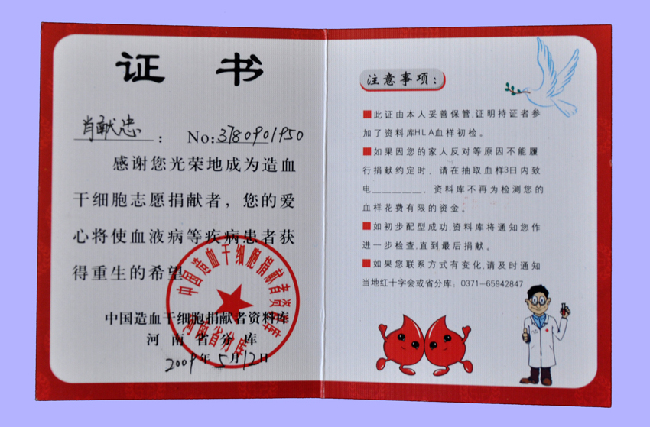 证 书
肖献忠 : No:3780901950
感谢您光荣地成为造血
干细胞志愿捐献者，您的爱
心将使血液病等疾病患者获
得重生的希望
中国造血干细胞捐献者资料库
河南省分库
2009年5月12日
中国造血干细胞捐献者资料库
河南省分库
注意事项：
■此证由本人妥善保管,证明持证者参
加了资料库HLA血样初检。
■如果因您的家人反对等原因不能履
行捐献约定时，请在抽取血样3日内致
电__________，资料库不再为检测您的
血样花费有限的资金。
■如初步配型成功,资料库将通知您作
进一步检查,直到最后捐献。
■如果您联系方式有变化,请及时通知
当地红十字会或省分库：0371-65942847